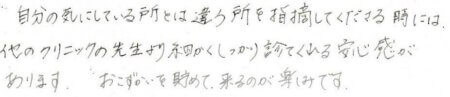 自分の気にしている所とは違う所を指摘してくださる時には、
他のクリニックの先生より細かくしっかり診てくれる安心感が
あります。 おこずかいを貯めて、来るのが楽しみです。